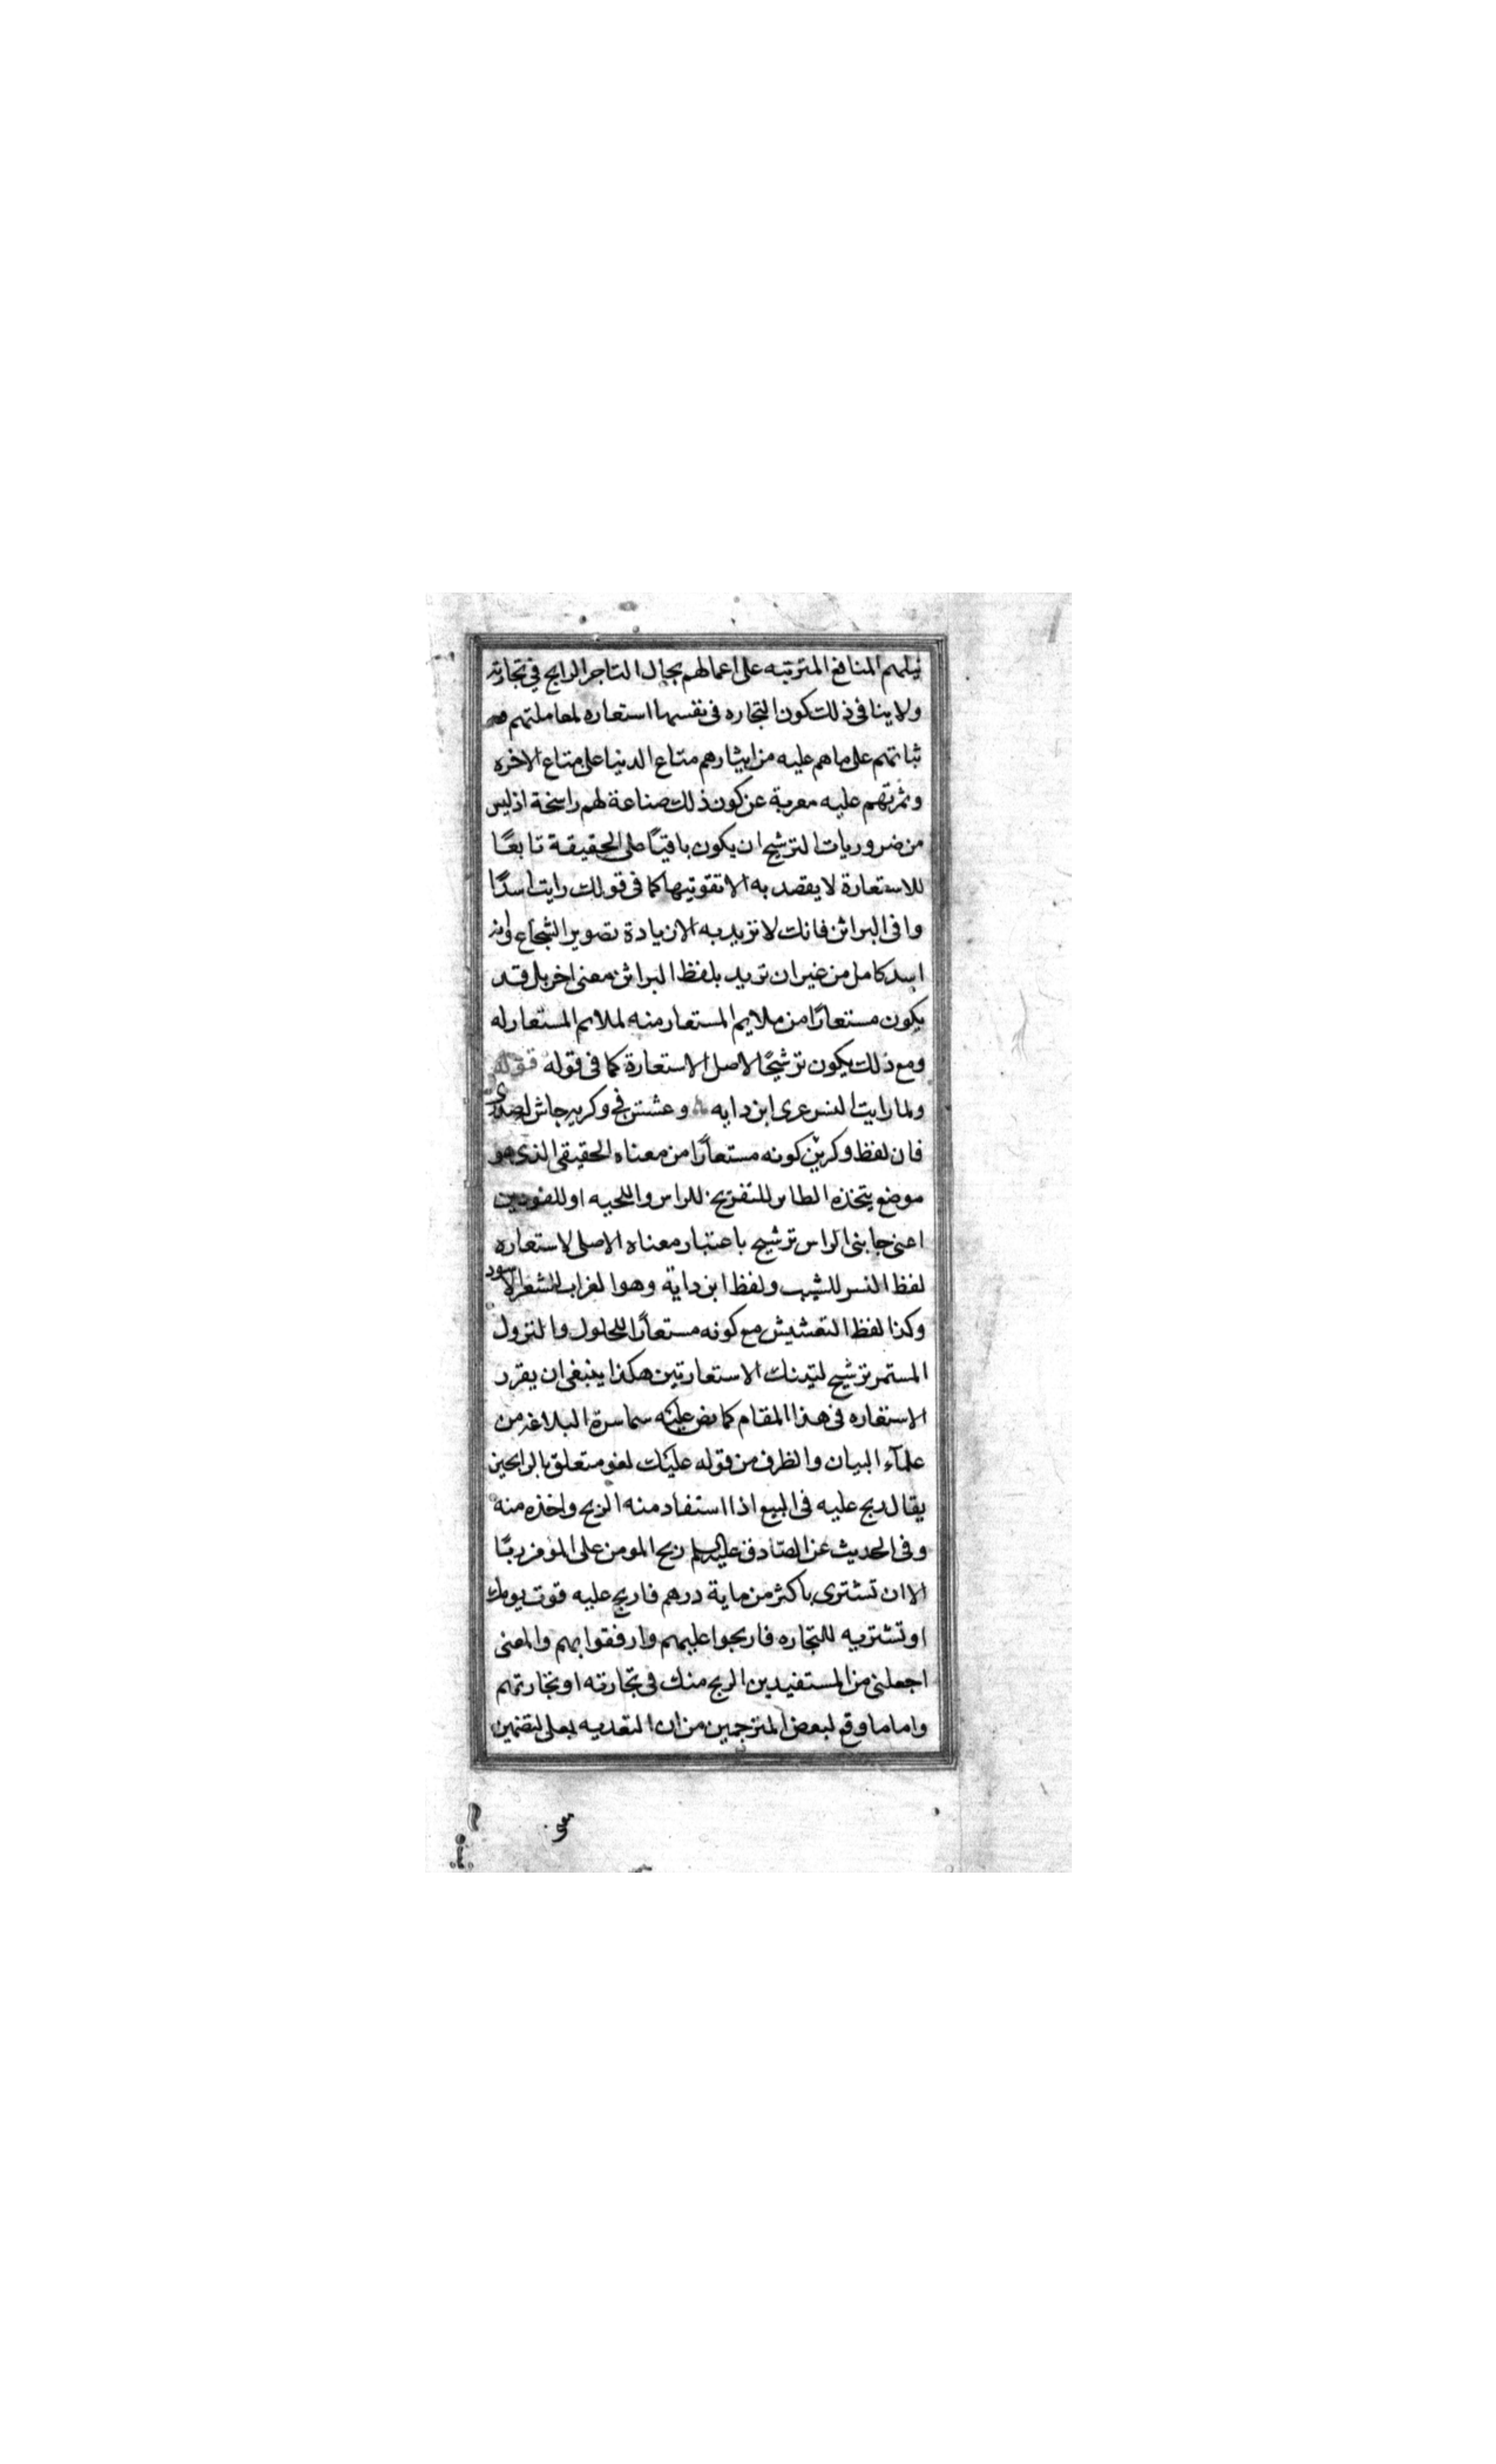 نيلهم المنافع المترتبه على اعمالهم بحال التاجر الرابح في تجارته
ولا ينافى ذلك كون التجاره فى نفسها استعاره لمعاملتهم
ثباتهم على ما هم عليه من ايثارهم متاع الدنيا على متاع الاخره
وتمرنهم عليه معربة عن كون ذلك صناعة لهم راسخة اذ ليس
من ضروريات الترشيح ان يكون باقيًا على الحقيقة تابعًا
للاستعارة لا يقصد به الا تقويتها كما فى قولك رايت اسدًا
وافى البراثن فانك لا تريد به الا زيادة تصوير الشجاع وانه
اسد كامل من غير ان تريد بلفظ البراثن معنى اخر بل قد
يكون مستعارًا من ملايم المستعار منه لملايم المستعار له
ومع ذلك يكون ترشيحًا لاصل الاستعارة كما فى قوله قوله
ولما رايت النسر عزى ابن دايه وعشش في وكريه جاش له صدرى
فان لفظ وكرين كونه مستعارًا من معناه الحقيقى الذى هو
موضع يتخذه الطاير للتفريخ للراس واللحيه او للفودين
اعنى جابنى الراس ترشيح باعتبار معناه الاصلى لاستعاره
لفظ النسر للشيب ولفظ ابن داية وهو الغراب للشعر الاسود
وكذا لفظ التعشيش مع كونه مستعارًا للحلول والنزول
المستمر ترشيح لتينك الاستعارتين هكذا ينبغى ان يقرر
الاستعاره فى هذا المقام كما نص عليه سماسرة البلاغه من
علمآء البيان والظرف من قوله عليك لغو متعلق بالرابحين
يقال ربح عليه فى البيع اذا استفاد منه الربح واخذه منه
وفى الحديث عن الصادق عليه السلم ربح المومن على المؤمن ربًا
الا ان تشترى باكثر من ماية درهم فاربح عليه قوت يومك
او تشتريه للتجاره فاربحوا عليهم وارفقوا بهم والمعنى
اجعلنى من المستفيدين الربح منك فى تجارته او تجارتهم
واما ما وقع لبعض المترجمين من ان التعديه بعلى لتضمين